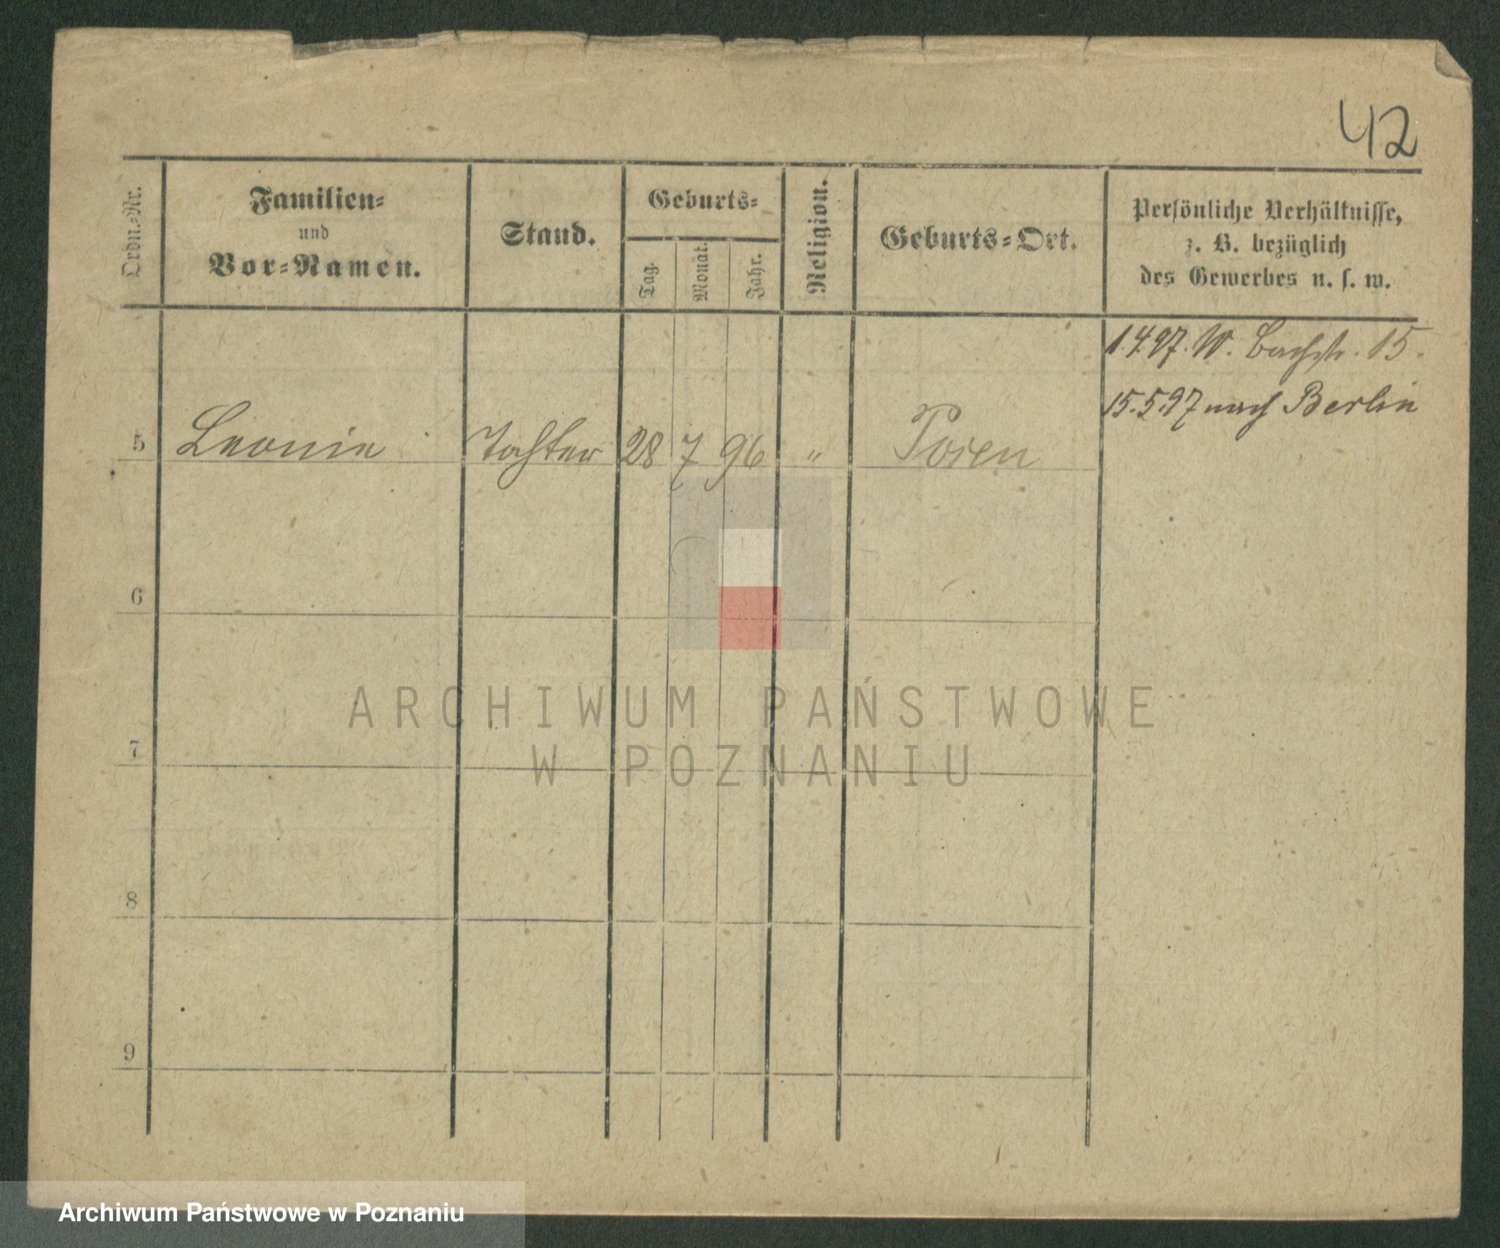 42
Ordn.-Nr.
Familien-
und
Vor-Namen.
Stand.
Geburts-
Tag.
Monat.
Jahr.
Religion.
Geburts-Ort.
Persönliche Verhältnisse,
z. B. bezüglich
des Gewerbes u. s. w.
1.4.97. W. Bachstr. 15.
15.5.97 nach Berlin
5 Leonie Tochter 28 7 96 " Posen
6
7
8
9
ARCHIWUM PAŃSTWOWE
W POZNANIU
Archiwum Państwowe w Poznaniu